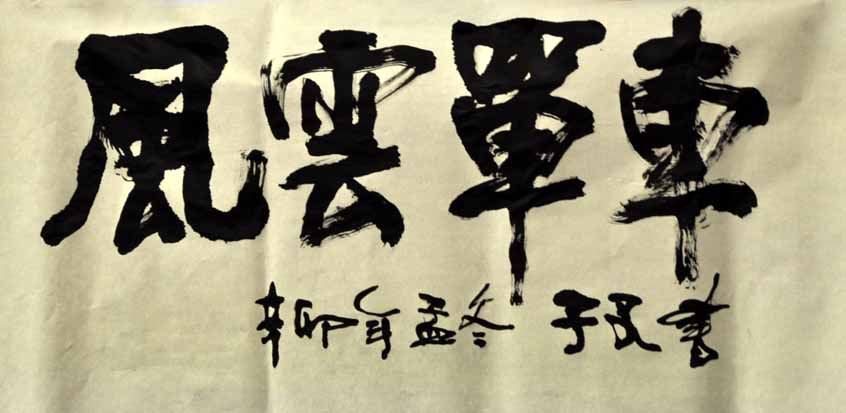 風雲單車
辛卯年孟冬 子民書